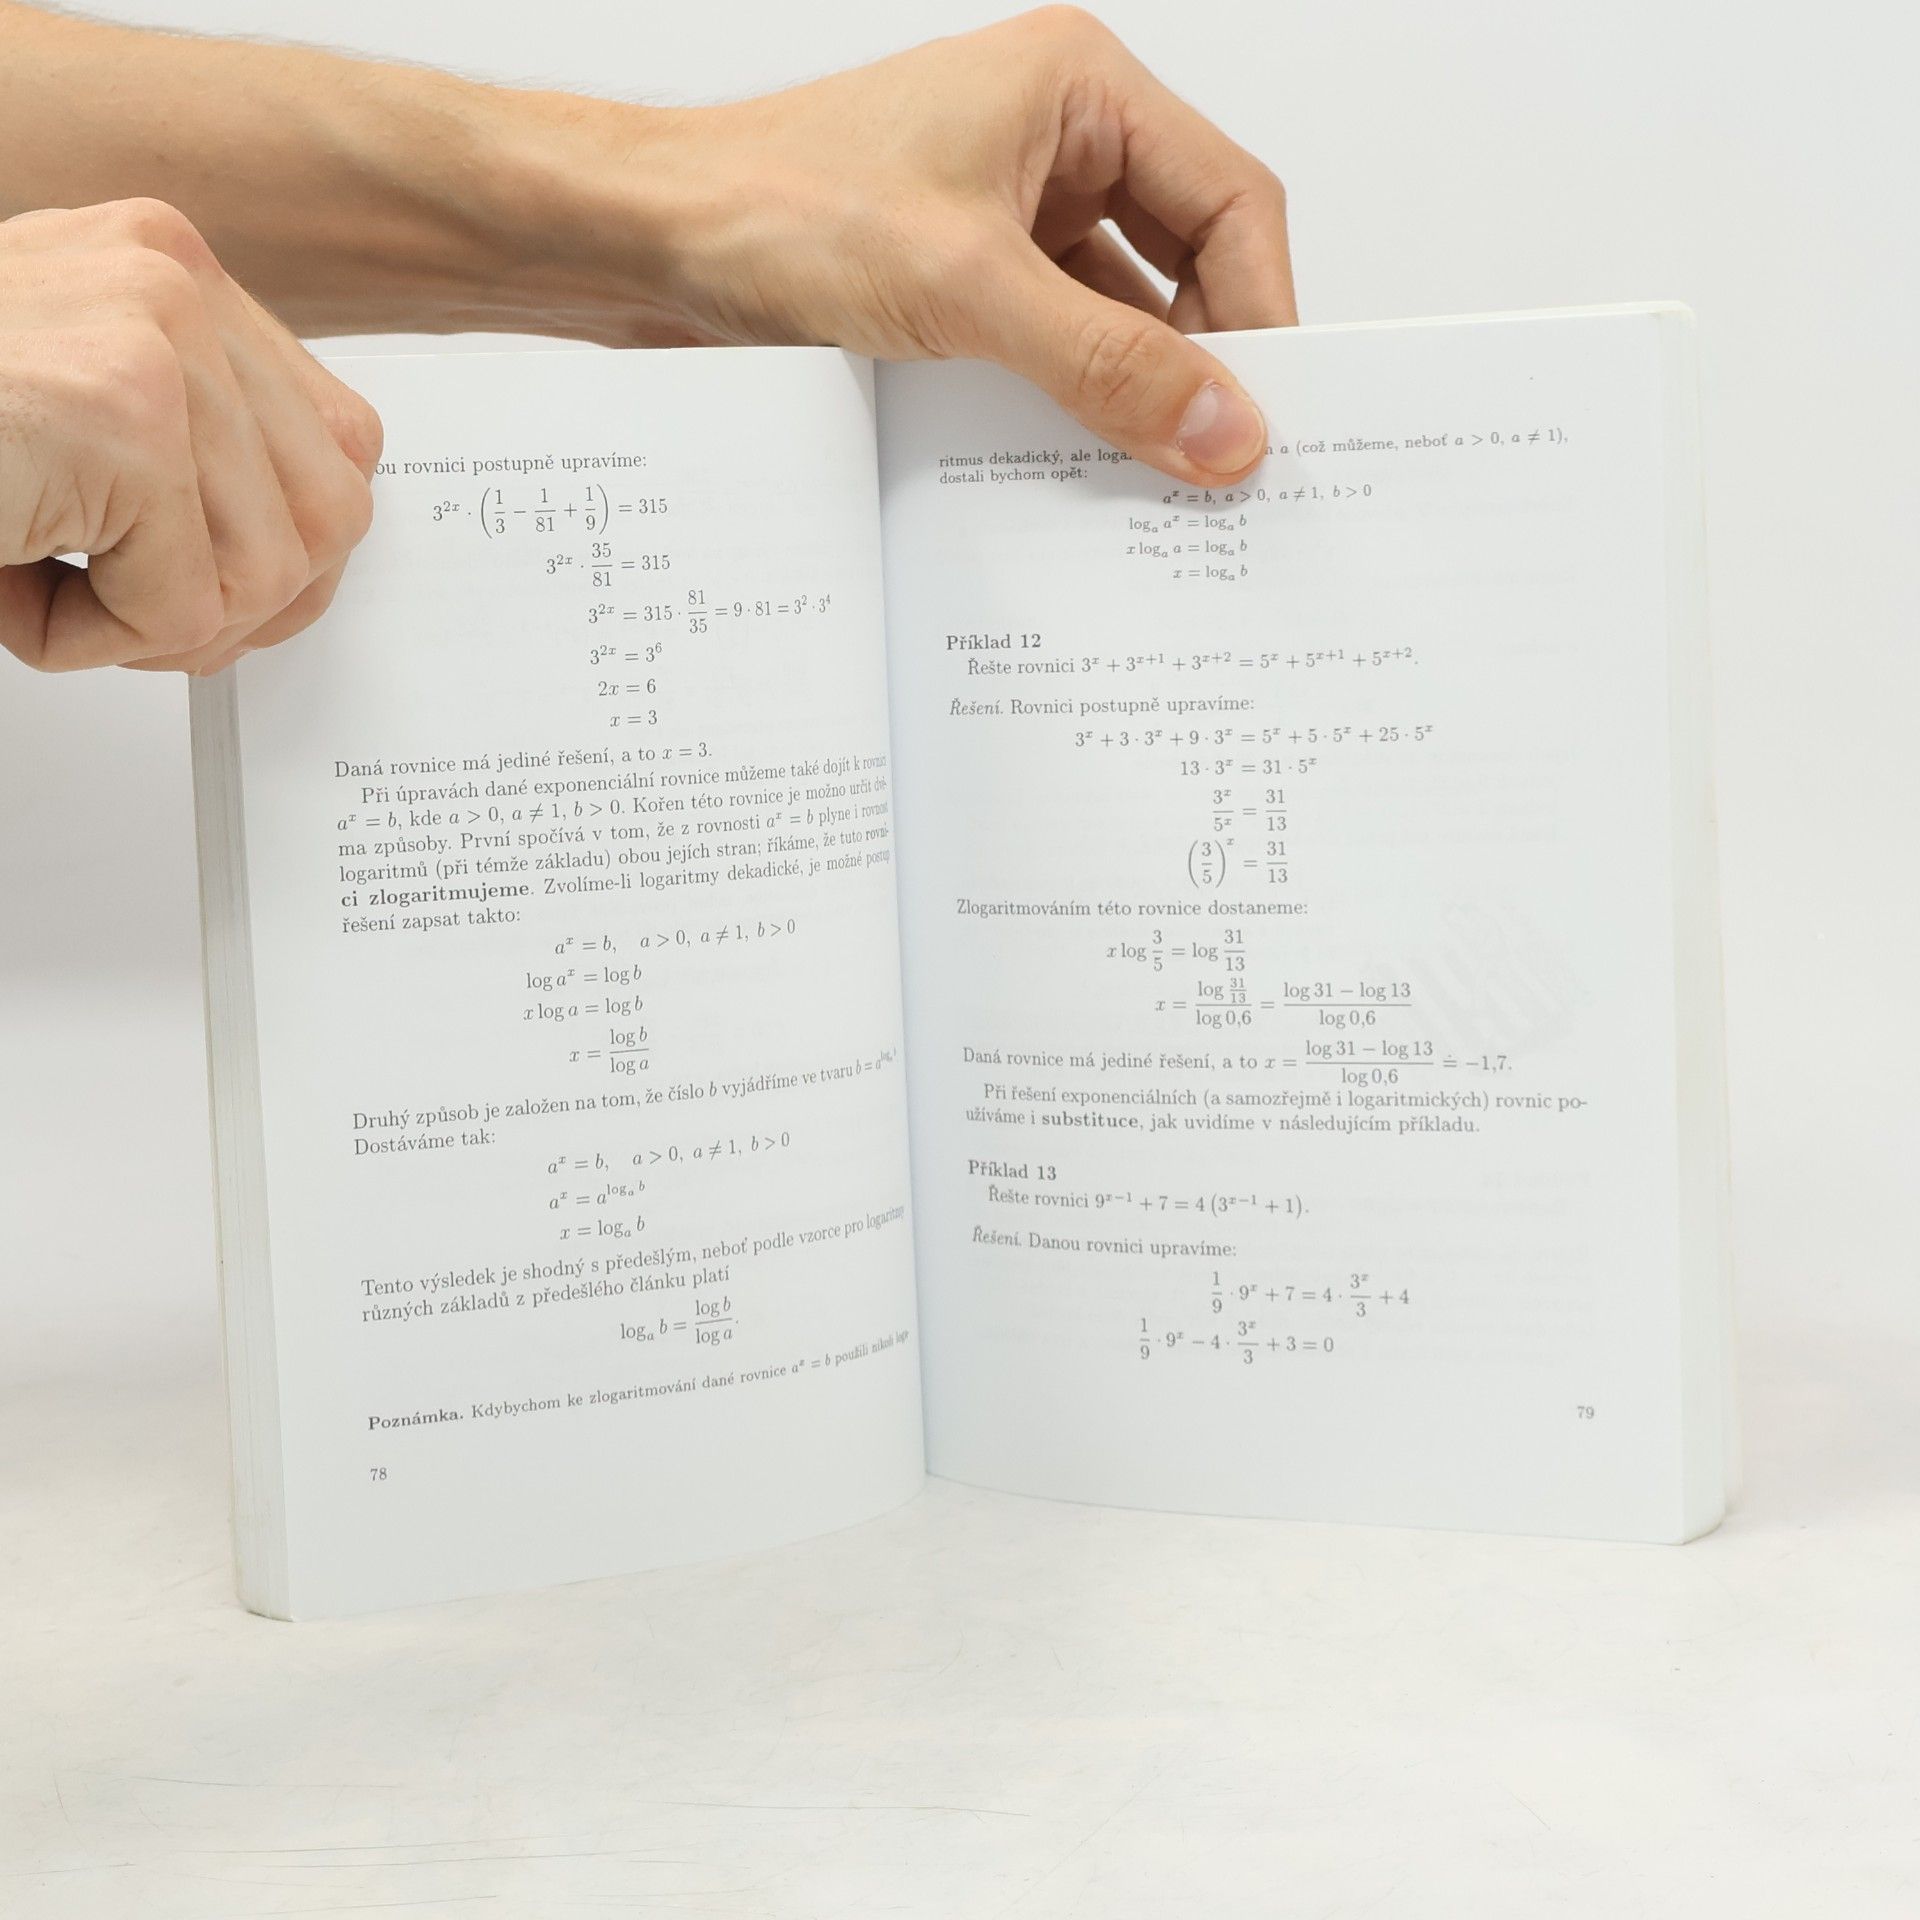 ou rovnici postupně upravíme:
3^{2x} · (1/3 − 1/81 + 1/9) = 315
3^{2x} · 35/81 = 315
3^{2x} = 315 · 81/35 = 9 · 81 = 3^2 · 3^4
3^{2x} = 3^6
2x = 6
x = 3
Daná rovnice má jediné řešení, a to x = 3.
Při úpravách dané exponenciální rovnice můžeme také dojít k rovnici
a^x = b, kde a > 0, a ≠ 1, b > 0. Kořen této rovnice je možno určit dvě-
ma způsoby. První spočívá v tom, že z rovnosti a^x = b plyne i rovnost
logaritmů (při témže základu) obou jejích stran; říkáme, že tuto rovni-
ci zlogaritmujeme. Zvolíme-li logaritmy dekadické, je možné postup
řešení zapsat takto:
a^x = b, a > 0, a ≠ 1, b > 0
log a^x = log b
x log a = log b
x = log b / log a
Druhý způsob je založen na tom, že číslo b vyjádříme ve tvaru b = a^{log_a b}
Dostáváme tak:
a^x = b, a > 0, a ≠ 1, b > 0
a^x = a^{log_a b}
x = log_a b
Tento výsledek je shodný s předešlým, neboť podle vzorce pro logaritmy
různých základů z předešlého článku platí
log_a b = log b / log a.
Poznámka. Kdybychom ke zlogaritmování dané rovnice a^x = b použili nikoli loga-
78
ritmus dekadický, ale loga a (což můžeme, neboť a > 0, a ≠ 1),
dostali bychom opět:
a^x = b, a > 0, a ≠ 1, b > 0
log_a a^x = log_a b
x log_a a = log_a b
x = log_a b
Příklad 12
Řešte rovnici 3^x + 3^{x+1} + 3^{x+2} = 5^x + 5^{x+1} + 5^{x+2}.
Řešení. Rovnici postupně upravíme:
3^x + 3 · 3^x + 9 · 3^x = 5^x + 5 · 5^x + 25 · 5^x
13 · 3^x = 31 · 5^x
3^x/5^x = 31/13
(3/5)^x = 31/13
Zlogaritmováním této rovnice dostaneme:
x log 3/5 = log 31/13
x = log 31/13 / log 0,6 = (log 31 − log 13) / log 0,6
Daná rovnice má jediné řešení, a to x = (log 31 − log 13) / log 0,6 ≐ −1,7.
Při řešení exponenciálních (a samozřejmě i logaritmických) rovnic po-
užíváme i substituce, jak uvidíme v následujícím příkladu.
Příklad 13
Řešte rovnici 9^{x−1} + 7 = 4 (3^{x−1} + 1).
Řešení. Danou rovnici upravíme:
1/9 · 9^x + 7 = 4 · 3^x/3 + 4
1/9 · 9^x − 4 · 3^x/3 + 3 = 0
79